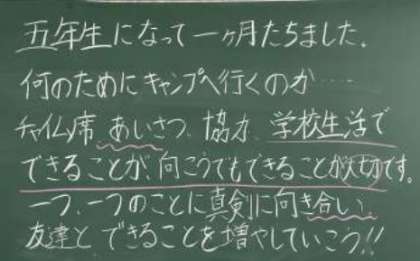 五年生になって一ヶ月たちました。
何のためにキャンプへ行くのか……
チャイム席、あいさつ、協力、学校生活で
できることが、向こうでもできることが大切です。
一つ、一つのことに真剣に向き合い、
友達とできることを増やしていこう!!